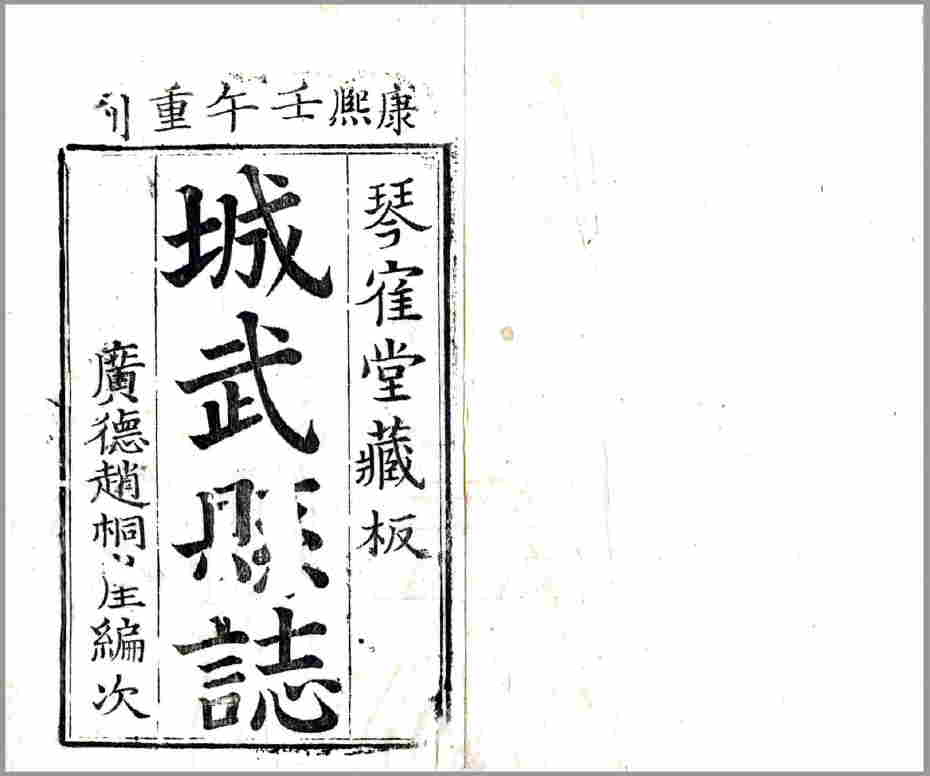 康熙壬午重刊
琴寉堂藏板
城武縣誌
廣德趙桐崖編次